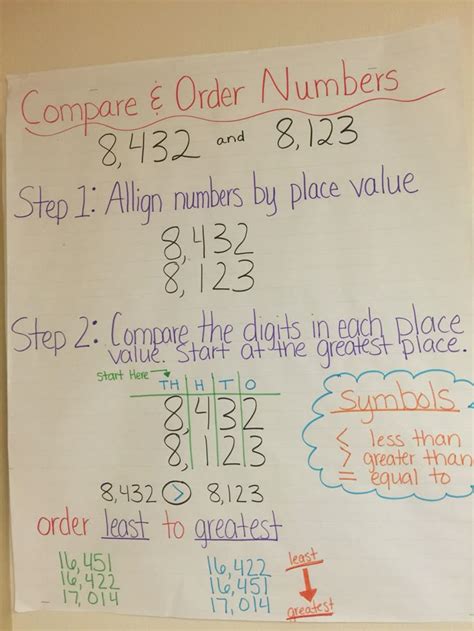 Compare & Order Numbers
8,432 and 8,123
Step 1: Allign numbers by place value
8,432
8,123
Step 2: Compare the digits in each place
value. Start at the greatest place.
Start Here → TH H T O
8,432
8,123
8,432 > 8,123
Symbols
< less than
> greater than
= equal to
order least to greatest
16,451
16,422
17,014
16,422
16,451
17,014
least
greatest